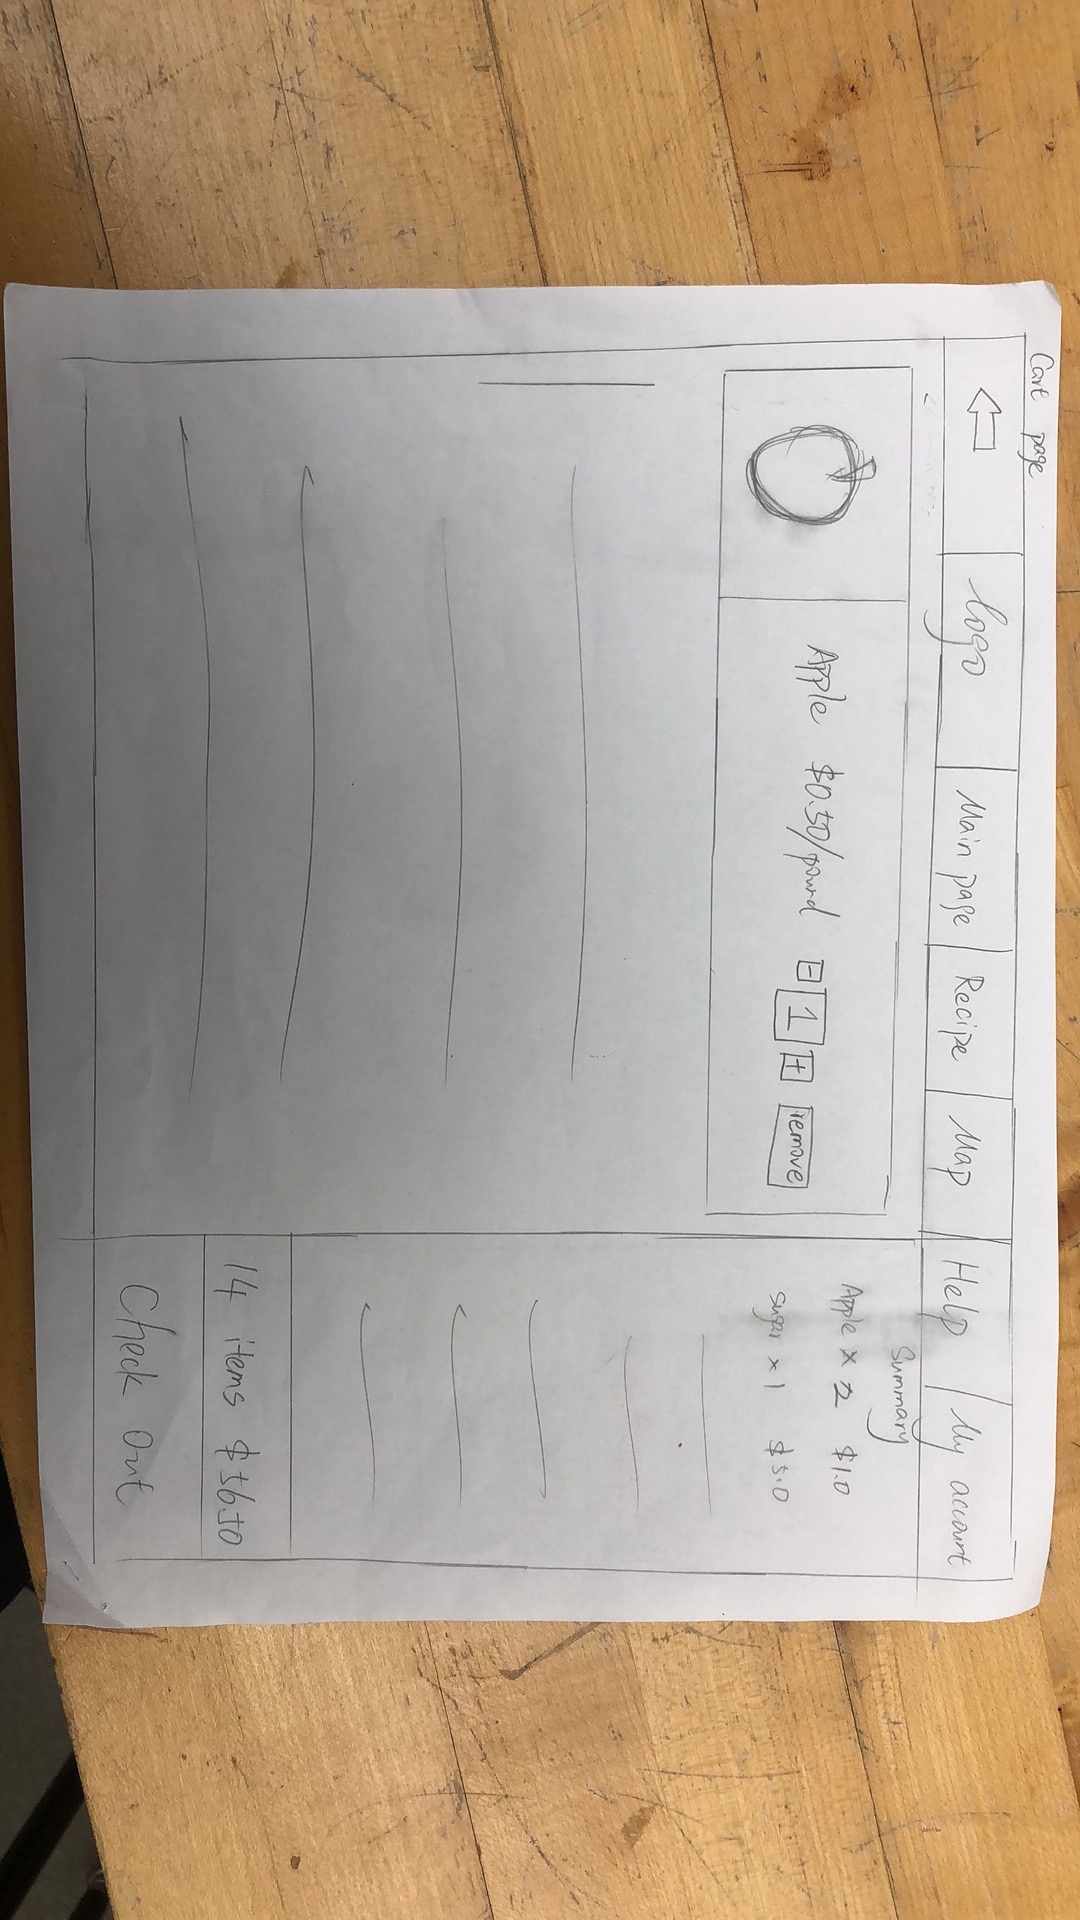 Cart page
logo Main page Recipe Map Help My account
Summary
Apple $0.50/pound - 1 + remove
Apple x 2 $1.0
sugar x 1 $5.0
14 items $56.50
Check Out